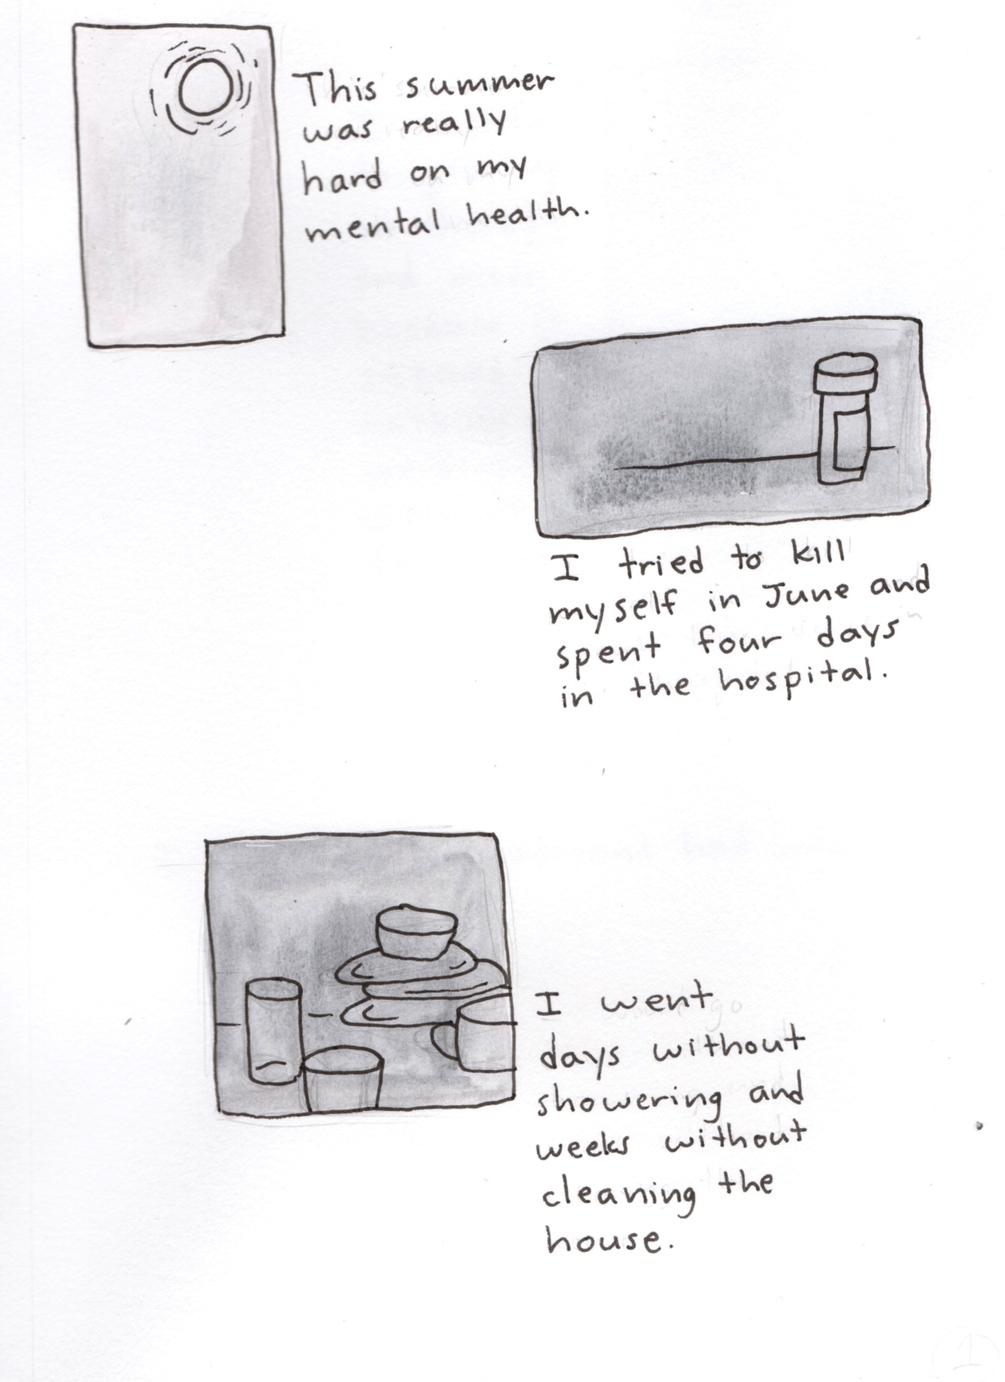 This summer
was really
hard on my
mental health.
I tried to kill
myself in June and
spent four days
in the hospital.
I went
days without
showering and
weeks without
cleaning the
house.
1